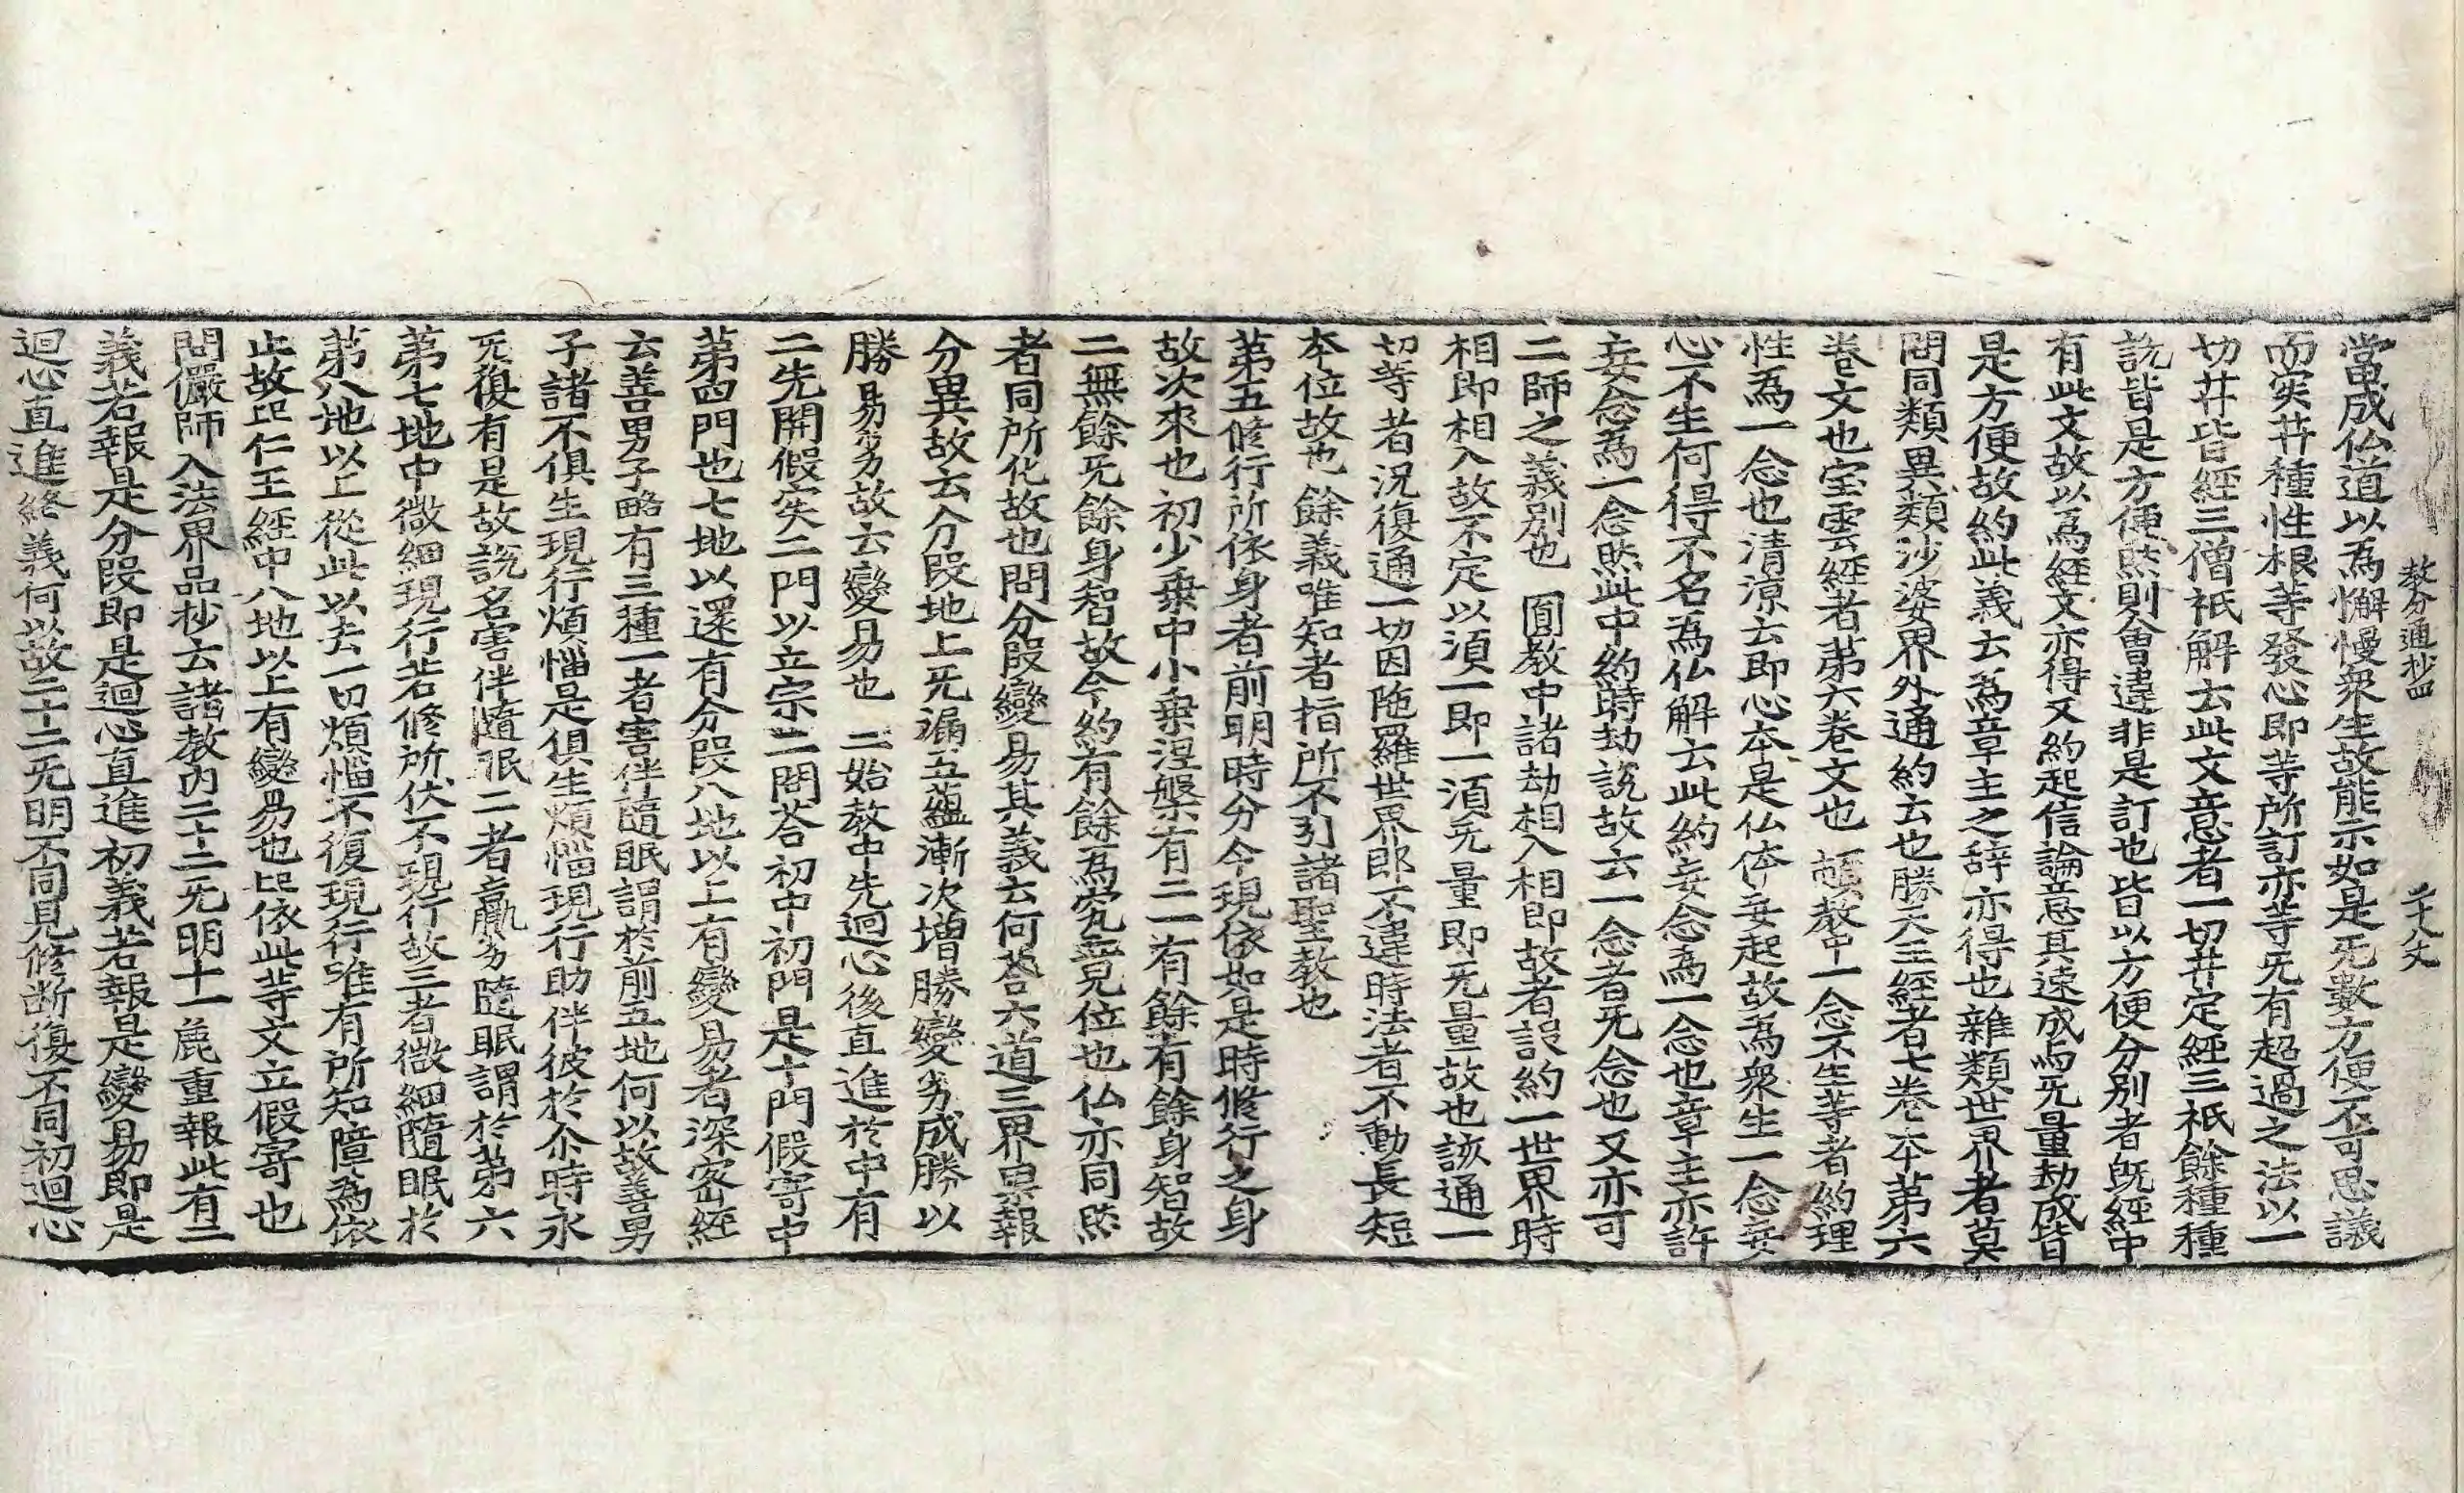 教分通抄四　二十八丈
當成仏道以為懈慢衆生故能示如是无數方便不可思議
而実井種性根等發心即等所訂亦等无有超過之法以一
切井皆經三僧祇解云此文意者一切井定經三祇餘種種
說皆是方便然則會違非是訂也皆以方便分別者旣經中
有此文故以爲經文亦得又約起信論意其速成而无量劫成皆
是方便故約此義云爲章主之辞亦得也雜類世界者莫
問同類異類沙婆界外通約云也勝天王經者七卷本第六
卷文也宝雲經者第六卷文也　頓教中一念不生等者約理
性爲一念也清凉云即心本是仏体妄起故爲衆生一念妄
心不生何得不名爲仏解云此約妄念爲一念也章主亦許
妄念爲一念然此中約時劫說故云一念者无念也又亦可
二師之義別也　圓教中諸劫相入相即故者該約一世界時
相即相入故不定以須一即一須无量即无量故也該通一
切等者況復通一切因陁羅世界郎不違時法者不動長短
本位故也餘義唯知者指所不引諸聖教也
第五修行所依身者前明時分今現依如是時修行之身
故次來也初少乗中小乗涅槃有二一有餘有餘身智故
二無餘无餘身智故今約有餘爲究竟見位也仏亦同然
者同所化故也問分段變易其義云何荅六道三界果報
分異故云分段地上无漏五蘊漸次增勝變劣成勝以
勝易劣故云變易也　二始教中先迴心後直進於中有
二先開假実二門以立宗二問荅初中初門是十門假寄中
第四門也七地以還有分段八地以上有變易者深密經
云善男子略有三種一者害伴隨眠謂於前五地何以故善男
子諸不俱生現行煩惱是俱生煩惱現行助伴彼於尒時永
无復有是故說名害伴隨眠二者羸劣隨眠謂於第六
第七地中微細現行若修所伏不現行故三者微細隨眠於
第八地以上從此以去一切煩惱不復現行唯有所知障爲依
止故疋仁王經中八地以上有變易也疋依此等文立假寄也
問儼師入法界品抄云諸教內二十二无明十一麁重報此有二
義若報是分段即是迴心直進初義若報是變易即是
迴心直進終義何以故二十二无明不同見修断復不同初迴心